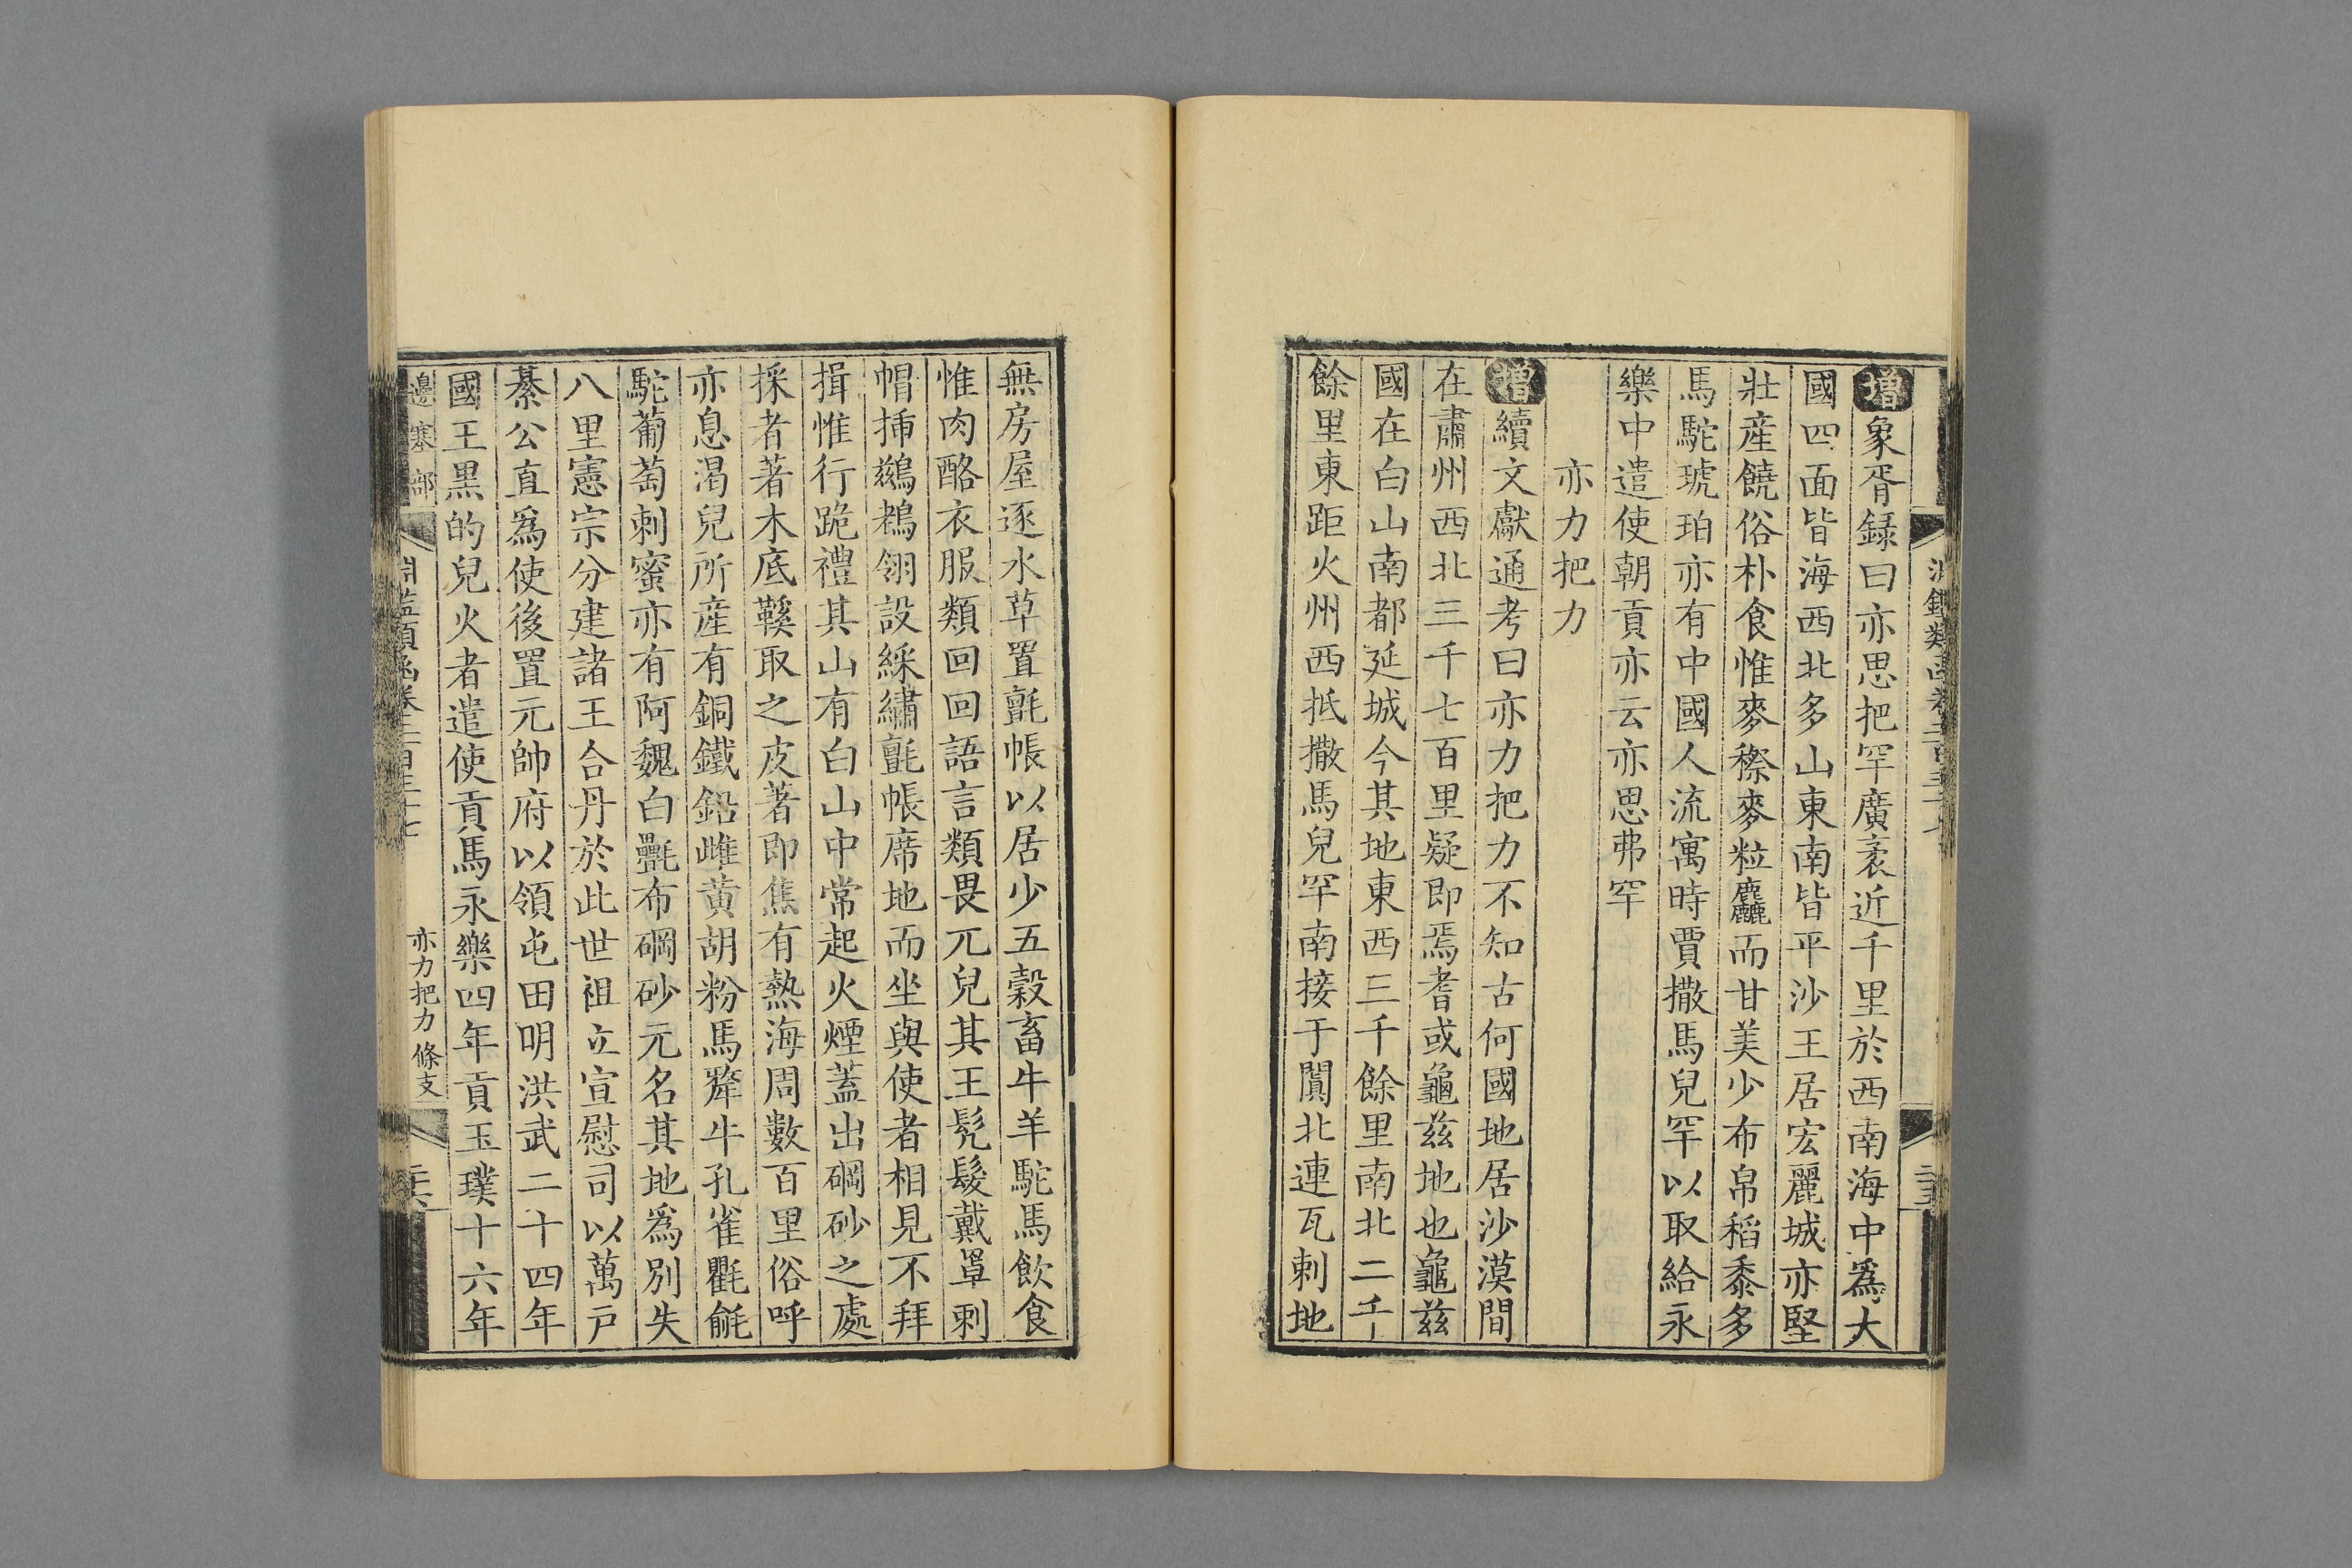 增象胥録曰亦思把罕廣袤近千里於西南海中爲大
國四面皆海西北多山東南皆平沙王居宏麗城亦堅
壯産饒俗朴食惟麥穄麥粒麤而甘美少布帛稻黍多
馬駝琥珀亦有中國人流寓時賈撒馬兒罕以取給永
樂中遣使朝貢亦云亦思弗罕
亦力把力
增續文獻通考曰亦力把力不知古何國地居沙漠間
在肅州西北三千七百里疑即焉耆或龜兹地也龜兹
國在白山南都延城今其地東西三千餘里南北二千
餘里東距火州西抵撒馬兒罕南接于闐北連瓦剌地
無房屋逐水草置氈帳以居少五穀畜牛羊駝馬飲食
惟肉酪衣服類回回語言類畏兀兒其王髡髮戴罩剌
帽揷鷀鵜翎設綵繡氈帳席地而坐與使者相見不拜
揖惟行跪禮其山有白山中常起火煙蓋出硇砂之處
採者著木底鞵取之皮著即焦有熱海周數百里俗呼
亦息渴兒所産有銅鐵鉛雌黄胡粉馬犛牛孔雀氍毹
駝葡萄刺蜜亦有阿魏白氎布硇砂元名其地爲別失
八里憲宗分建諸王合丹於此世祖立宣慰司以萬戸
綦公直爲使後置元帥府以領屯田明洪武二十四年
國王黒的兒火者遣使貢馬永樂四年貢玉璞十六年
邊塞部
淵鑑類函卷二百三十七
亦力把力 條支
二六